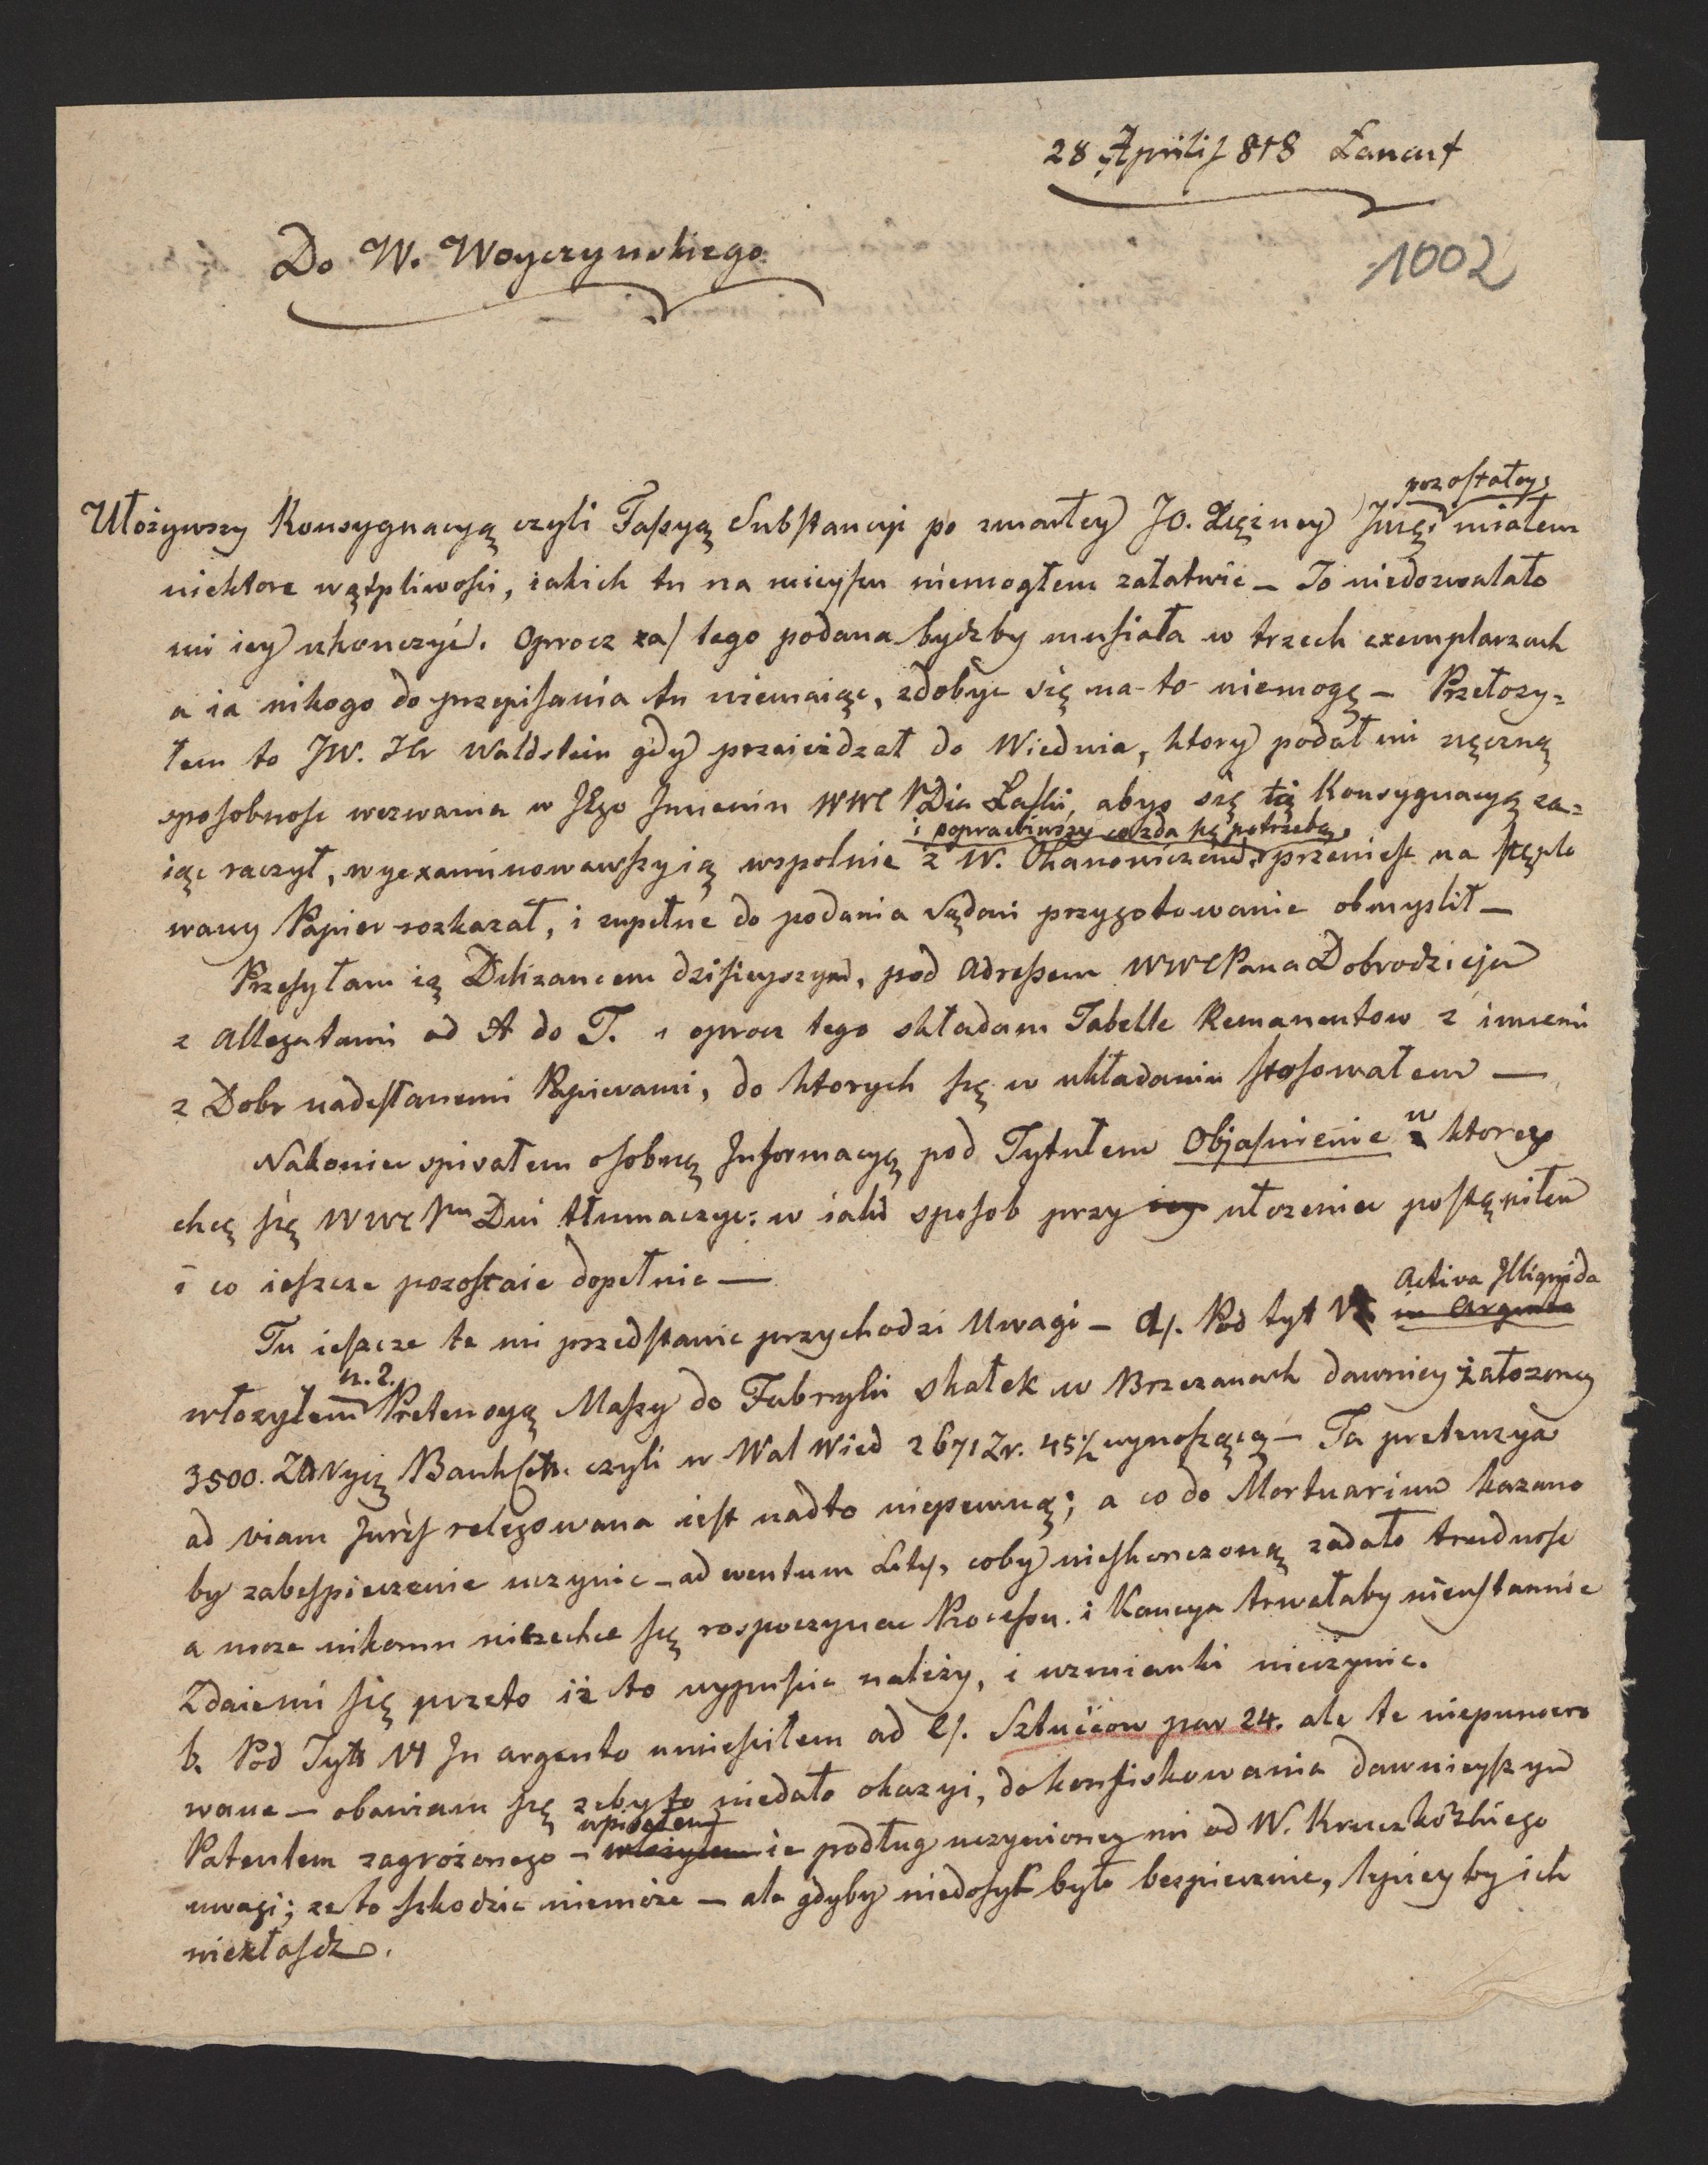 28 Aprilis 818 Łancut
1002
Do W. Woyczynskiego
pozostałey
Ułożywszy Konsygnacyą czyli Fassyą Substancyi po zmarłey JO. Xiężney Jmci miałem
niektore wątpliwości, iakich tu na mieyscu niemogłem załatwić – To niedozwalało
mi iey ukonczyć. Oprocz zaś tego podana bydźby musiała w trzech exemplarzach
a ia nikogo do przepisania tu niemaiąc, zdobyć się na to niemogę – Przełozy=
łem to JW. Hr Waldstein gdy przeieżdzał do Wiednia, ktory podał mi ręczną
sposobnosc wezwania w JEgo Jmieniu WWC PDia Łaski, abyś się tą Konsygnacyą za=
i poprawiwszy co zda się potrzebą
iąc raczył, wyexaminowawszy ią wspolnie z W. Okanowiczem, przenieść na stęplo
wany Papier rozkazał, i zupełne do podania Sądowi przygotowanie obmyslił –
Przesyłam ią Delizancem dzisieyszym, pod Adressem WWCPana Dobrodzieja
z Allegatami od A do T. i oprocz tego składam Tabelle Remanentow z innemi
z Dobr nadesłanemi Papierami, do ktorych się w układaniu stosowałem —
Nakoniec spisałem osobną Informacyą pod Tytułem Objasnienie w ktorey
chcę się WWC Pu Dwi tłumaczyc: w iaki sposob przy iey ułozeniu postąpiłem
i co ieszcze pozostaie dopełnic —
Activa Illiquida
Tu ieszcze te mi przedstawic przychodzi Uwagi – a/. Pod tyt V in Argento
n. 2.
włozyłem Pretensyą Massy do Fabryki skałek w Brzezanach dawniey założoney
3500. ZłRyć Bank Cet. czyli w Wal Wied 2671 Zr. 45 x wynoszącą – Ta pretensya
ad viam Juris relegowana iest nadto niepewną; a co do Mortuarium kazano
by zabespieczenie uczynic – ad eventum Litis, coby nieskonczoną zadało trudnosc
a moze nikomu niezechce się rospoczynac Processu. i Kaucya trwałaby nieustannie
Zdaiemi się przeto iż to wypuscic należy, i wzmianki nieczynic.
b. Pod Tyt VI In argento umiescilem ad e/. Sztuccow par 24. ale te niepuncero
wane – obawiam się zeby to niedało okazyi, do konfiskowania dawnieyszym
wpisałem
Patentem zagrożonego – włożyłem ie podług uczynioney mi od W. Kruczkowskiego
uwagi; ze to szkodzic niemoże – ale gdyby niedosyć było bezpiecznie, lepiey by ich
niekłasdz.